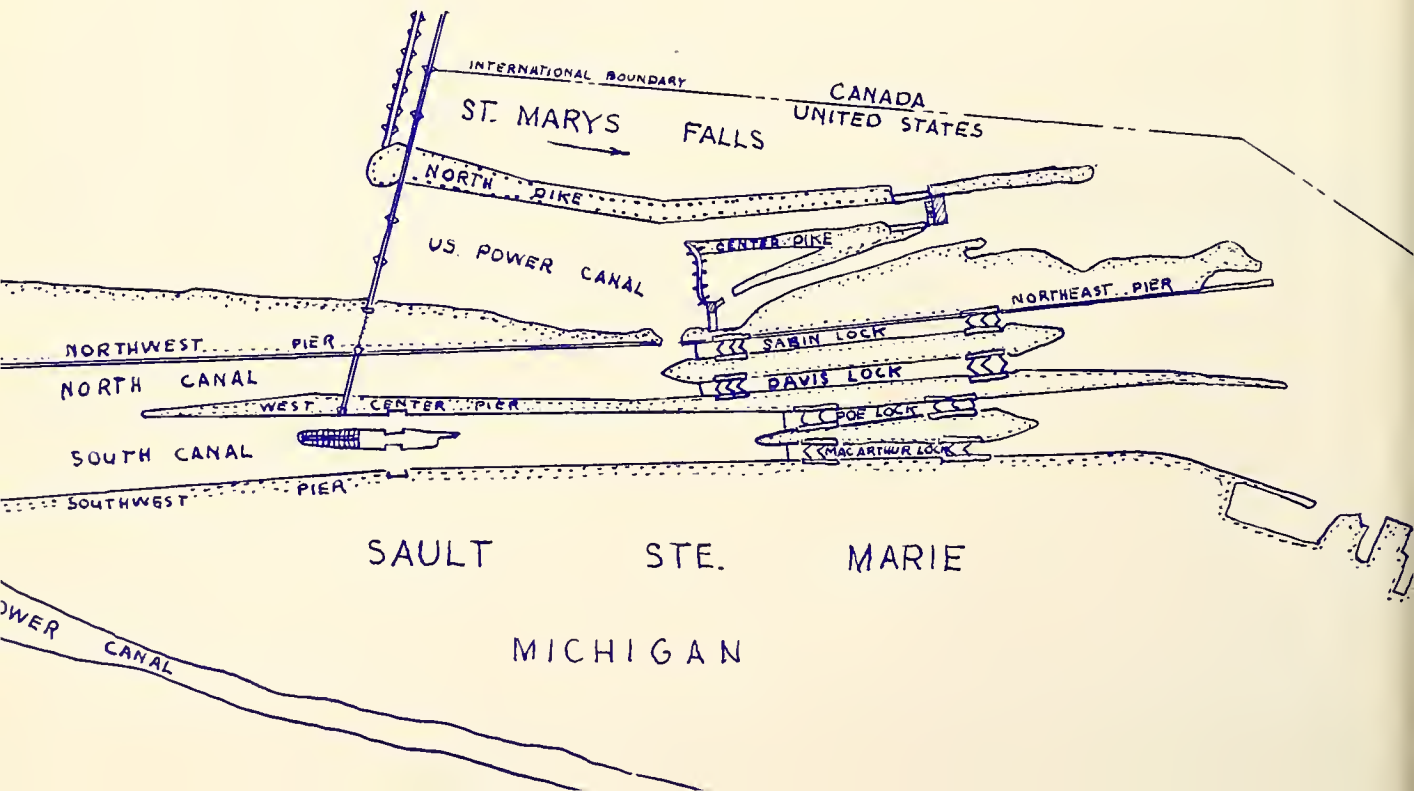 INTERNATIONAL BOUNDARY
CANADA
UNITED STATES
ST. MARYS FALLS
NORTH DIKE
CENTER DIKE
U.S. POWER CANAL
NORTHEAST PIER
NORTHWEST PIER
SABIN LOCK
NORTH CANAL
DAVIS LOCK
WEST CENTER PIER
POE LOCK
SOUTH CANAL
MACARTHUR LOCK
SOUTHWEST PIER
SAULT STE. MARIE
MICHIGAN
OWER CANAL